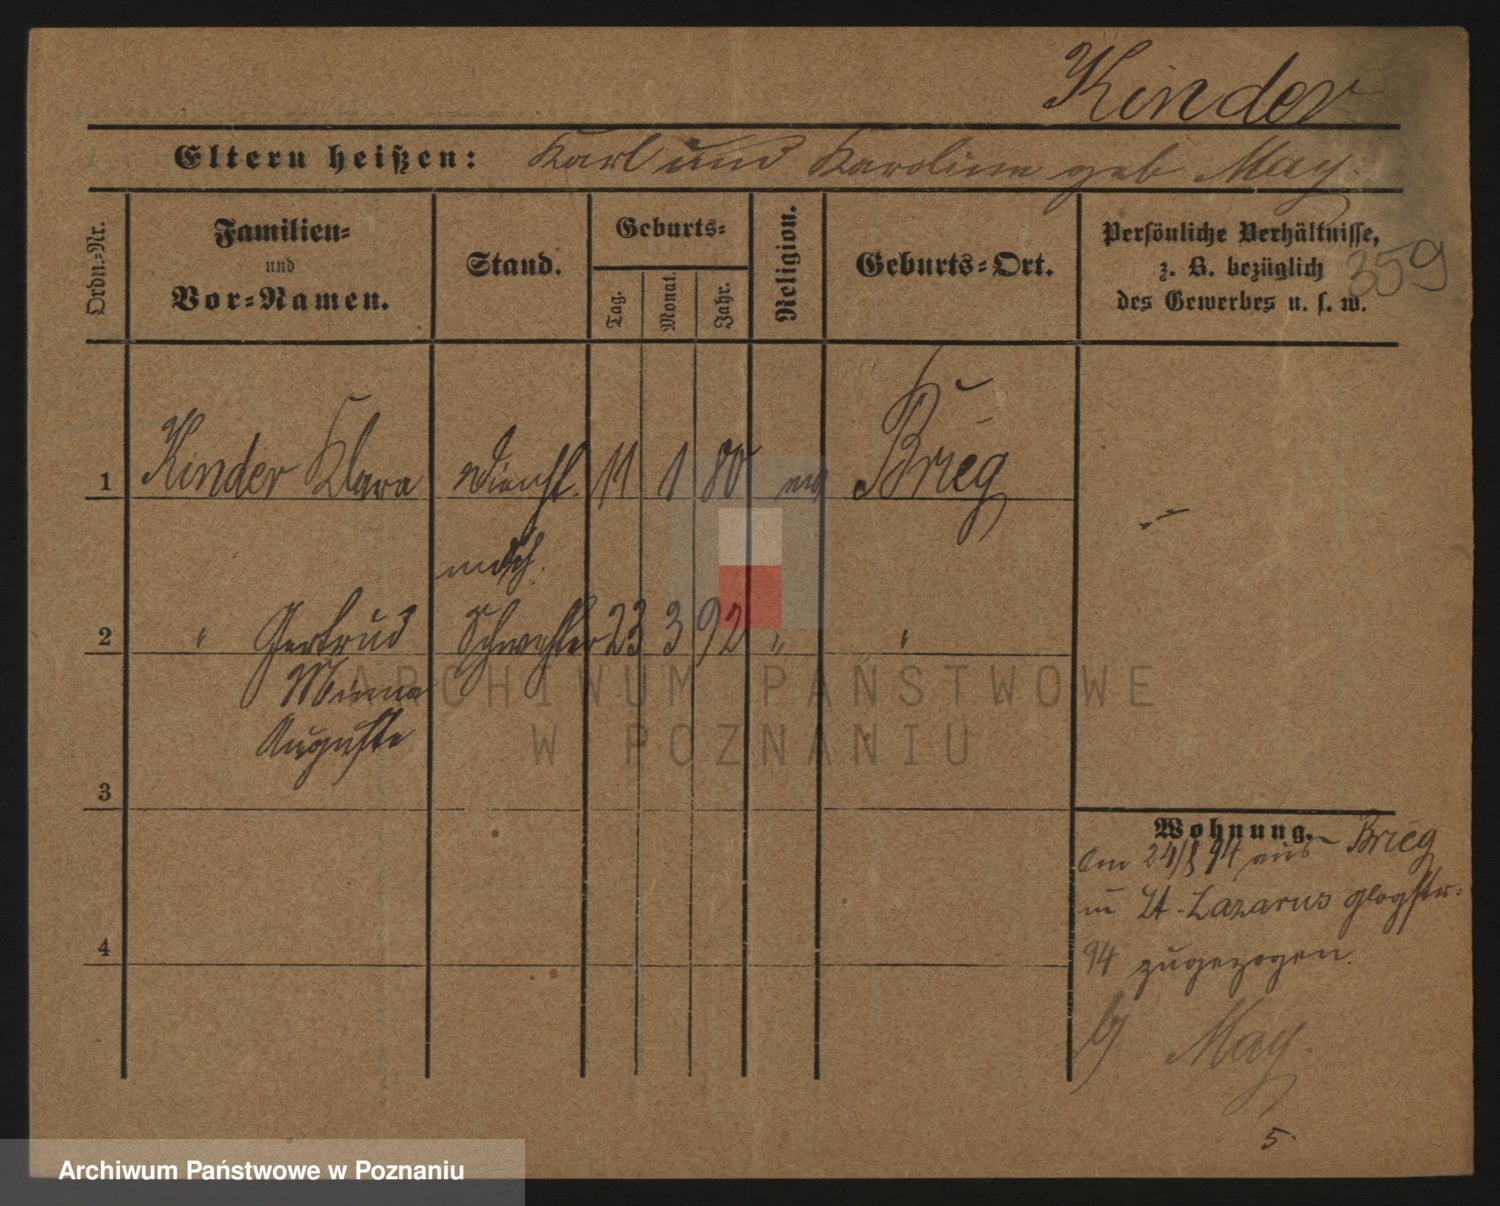 Kinder
Eltern heißen: Karl und Karoline geb May.
359
Ordn.-Nr.
Familien-
und
Vor-Namen.
Stand.
Geburts-
Tag.
Monat.
Jahr.
Religion.
Geburts-Ort.
Persönliche Verhältnisse,
z. B. bezüglich
des Gewerbes u. s. w.
1 Kinder Klara Dienst. 11 1 80 ev Brieg
mdch.
2 " Gertrud Schwester 23 3 92 " "
Minna
Auguste
3
4
Wohnung.
Am 24/8 94 aus Brieg
in St. Lazarus glogstr:
94 zugezogen.
b/ May.
5.
ARCHIWUM PAŃSTWOWE
W POZNANIU
Archiwum Państwowe w Poznaniu